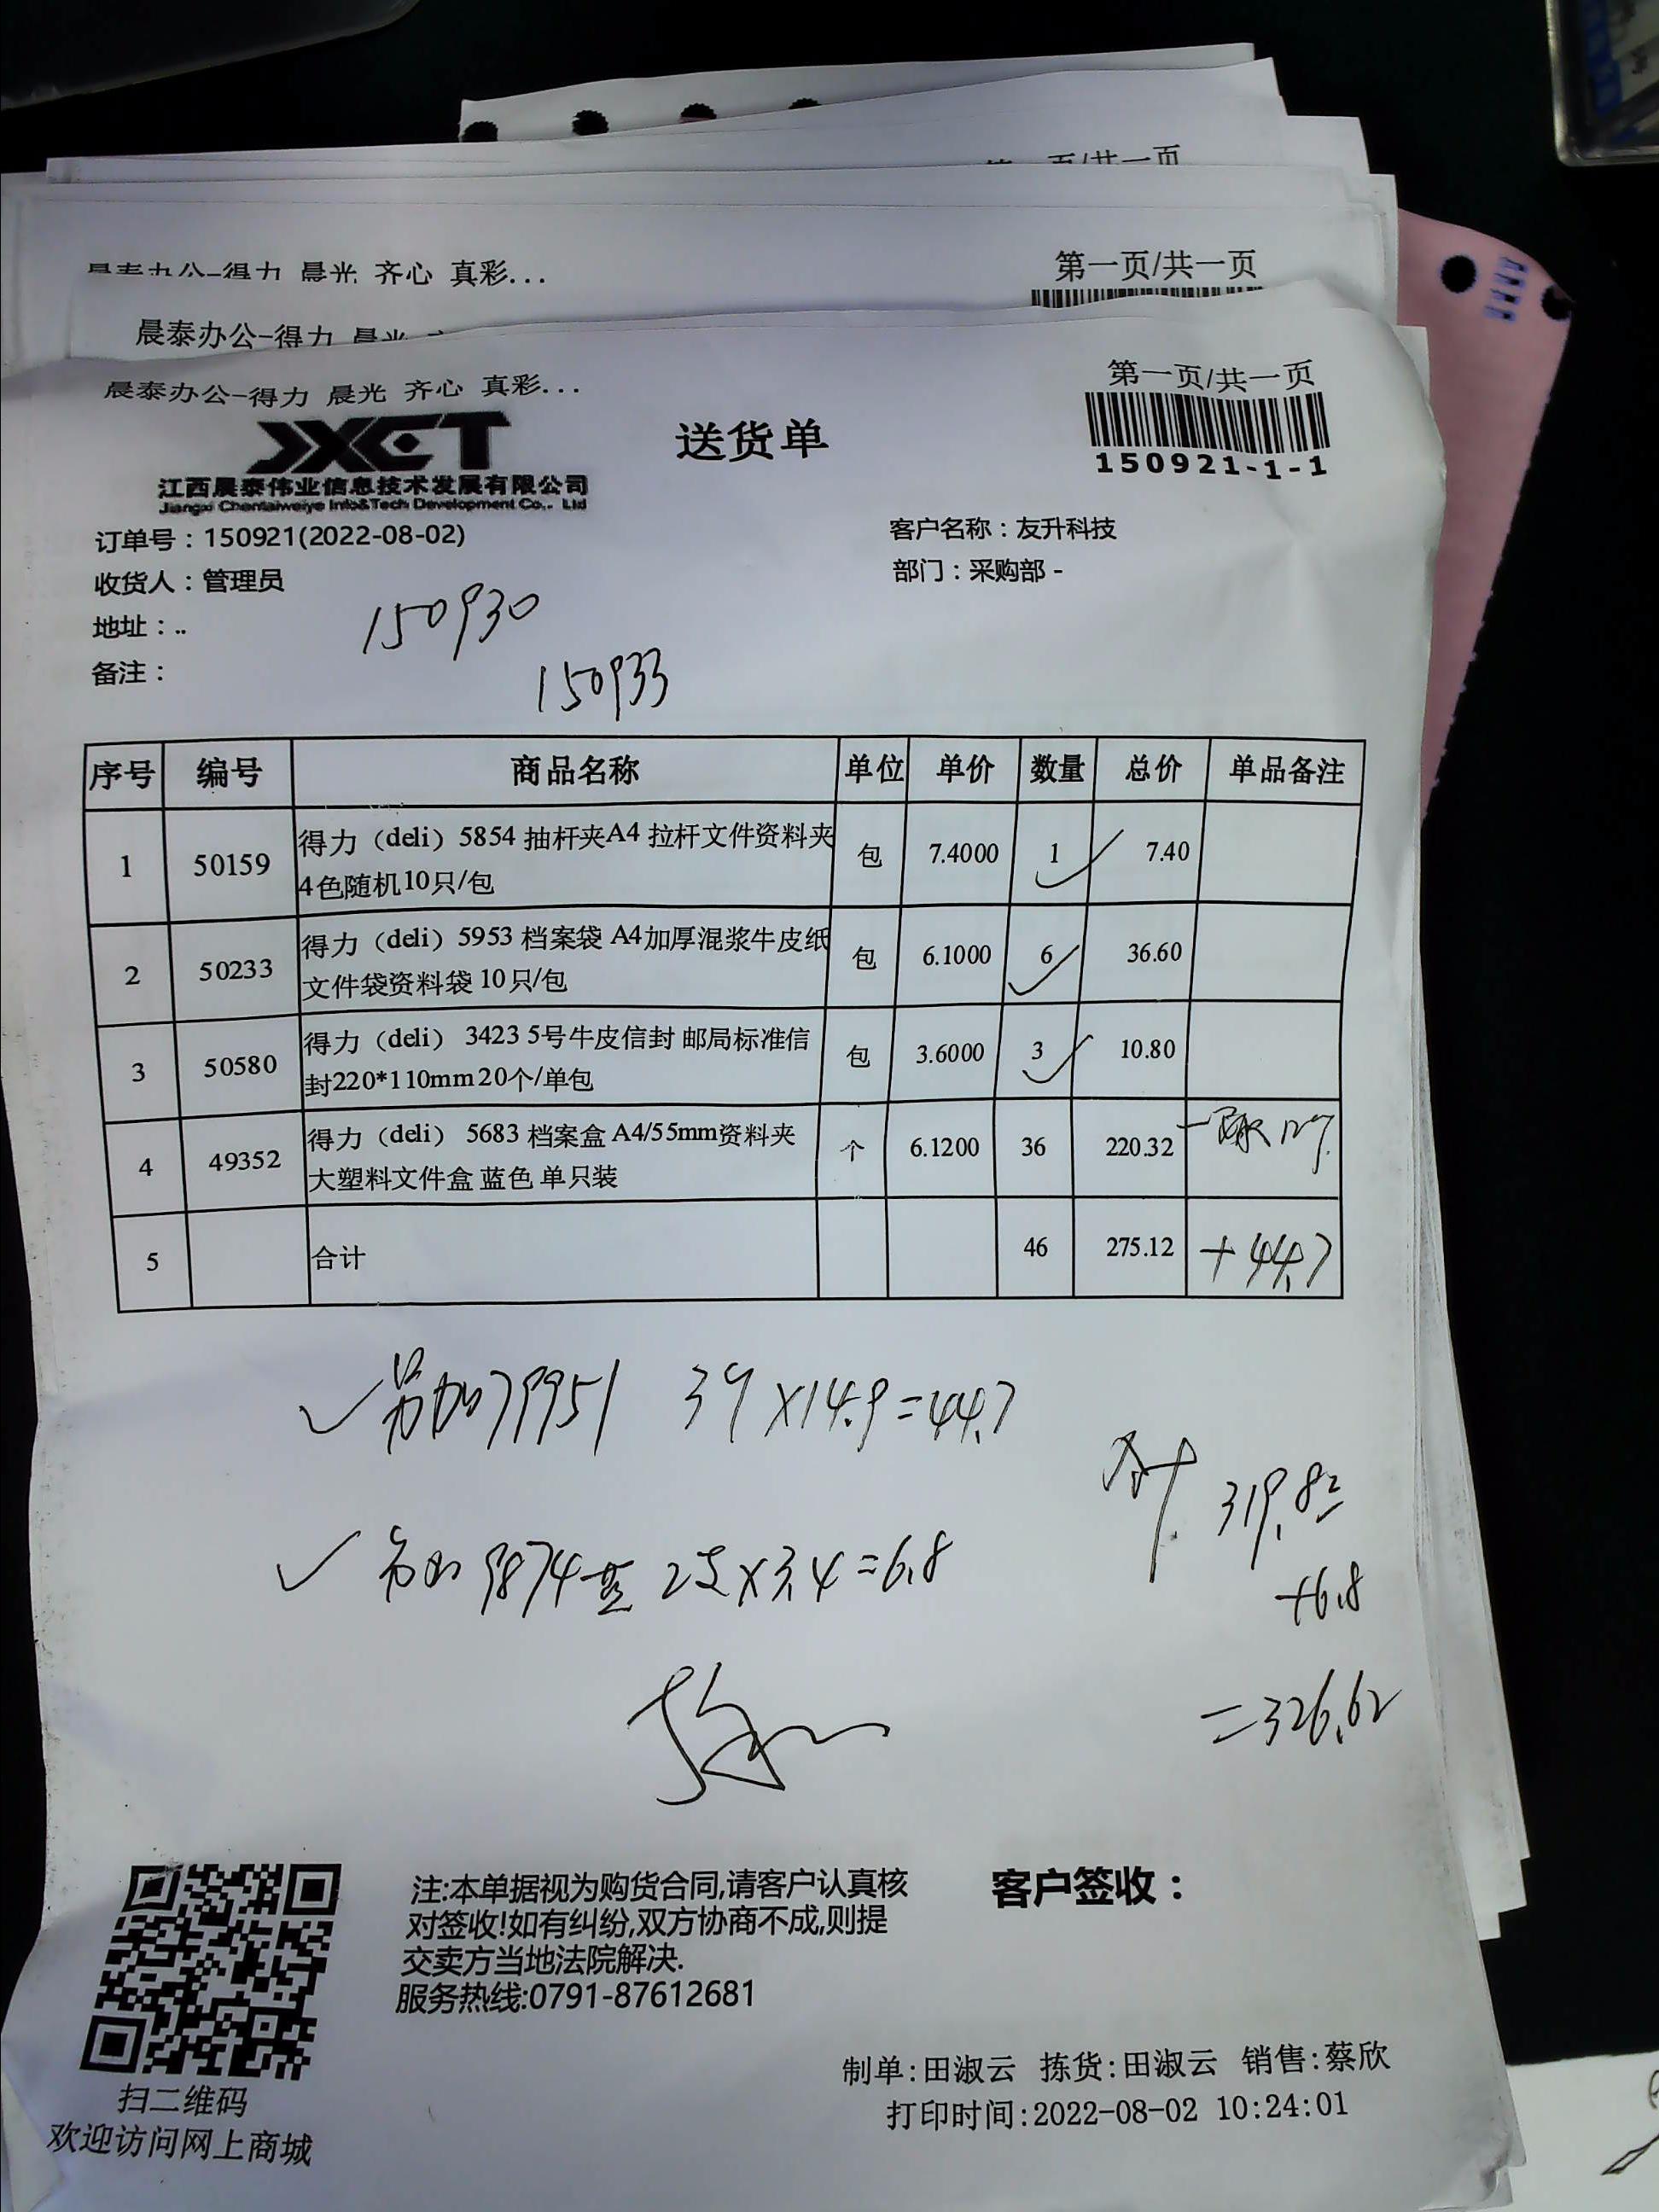 第一页/共一页
晨光 齐心 真彩...
晨泰办公-得力
晨泰办公-得力 晨光 齐心 真彩...
第一页/共一页
JXCT
送货单
150921-1-1
江西晨泰伟业信息技术发展有限公司
Jiangxi Chentaiweiye Info&Tech Development Co., Ltd
订单号：150921(2022-08-02)
客户名称：友升科技
收货人：管理员
部门：采购部 -
地址：..
150930
备注：
150933
序号 编号 商品名称 单位 单价 数量 总价 单品备注
1 50159 得力（deli）5854 抽杆夹A4 拉杆文件资料夹 包 7.4000 1 7.40
4色随机10只/包
2 50233 得力（deli）5953 档案袋 A4加厚混浆牛皮纸 包 6.1000 6 36.60
文件袋资料袋 10只/包
3 50580 得力（deli） 3423 5号牛皮信封 邮局标准信 包 3.6000 3 10.80
封220*110mm20个/单包
4 49352 得力（deli） 5683 档案盒 A4/55mm资料夹 个 6.1200 36 220.32
大塑料文件盒 蓝色 单只装
5 合计 46 275.12 +44.7
另加79951 3个×14.9=44.7
合计 319.82
另加9874蓝 2支×3.4=6.8
+6.8
=326.62
注:本单据视为购货合同,请客户认真核
对签收!如有纠纷,双方协商不成,则提
交卖方当地法院解决.
服务热线:0791-87612681
客户签收：
扫二维码
欢迎访问网上商城
制单:田淑云 拣货:田淑云 销售:蔡欣
打印时间:2022-08-02 10:24:01